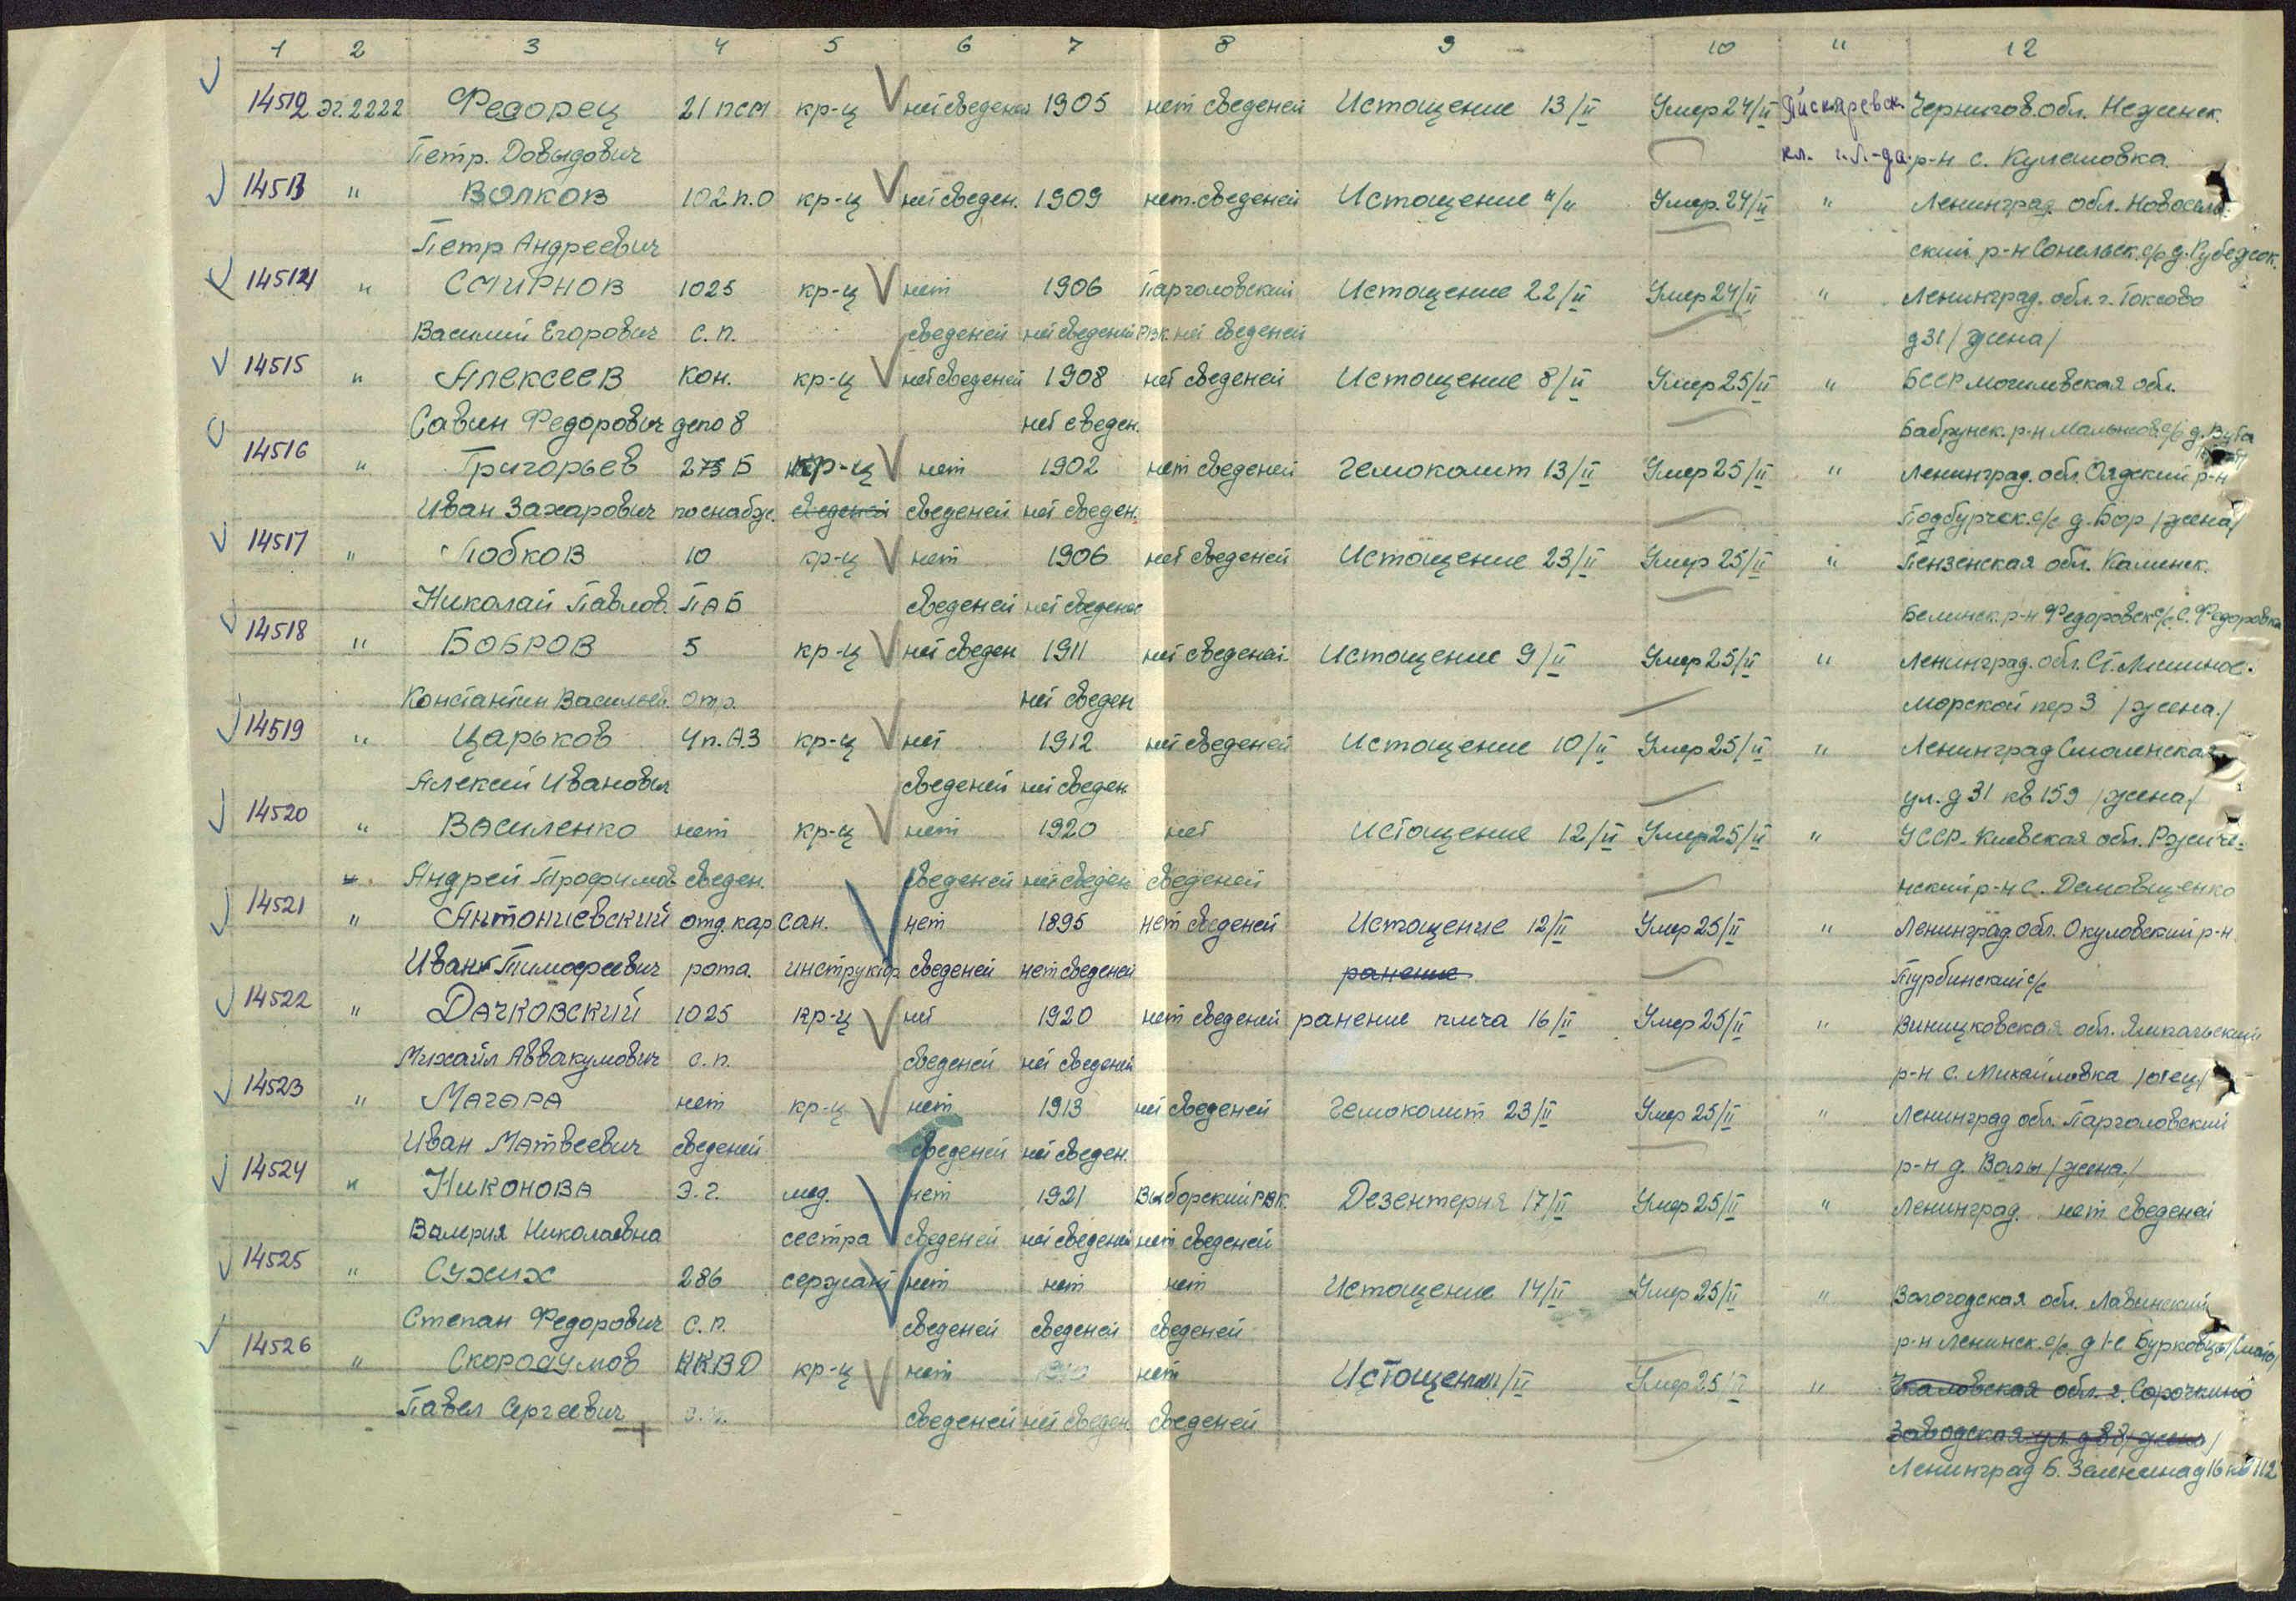 1 2 3 4 5 6 7 8 9 10 11 12
14512 эг.2222 Федорец 21 псм кр-ц нет сведеней 1905 нет сведеней Истощение 13/II Умер 24/II Пискаревск. Чернигов. обл. Нежинск.
Петр. Довыдович кл. г. Л-да р-н с. Кулешовка
14513 " Волков 102 п.о кр-ц нет сведен. 1909 нет. сведеней Истощение "/" Умер. 24/II " Ленинград. обл.
Петр Андреевич ский р-н с/с д.
14514 " Смирнов 1025 кр-ц нет 1906 Парголовский Истощение 22/II Умер 24/II " Ленинград. обл. г. Токсово
Василий Егорович с.п. сведеней нет сведеней РВК. нет сведеней д 31 /жена/
14515 " Алексеев кон. кр-ц нет сведеней 1908 нет сведеней Истощение 8/II Умер 25/II " БССР Могилевская обл.
Савин Федорович депо 8 нет сведен. Бабруйск. р-н с/с д.
14516 " Григорьев 275 Б кр-ц нет 1902 нет сведеней Гемоколит 13/II Умер 25/II " Ленинград. обл. р-н
Иван Захарович по снабж. сведеней сведеней нет сведен. с/с д. Бор /жена/
14517 " Лобков 10 кр-ц нет 1906 нет сведеней Истощение 23/II Умер 25/II " Пензенская обл. Каменск.
Николай Павлов. ПАБ сведеней нет сведеней Белинск. р-н Федоровск с/с. с. Федоровка
14518 " Бобров 5 кр-ц нет сведен 1911 нет сведеней Истощение 9/II Умер 25/II " Ленинград. обл. Ст.
Константин Васильев. отр. нет сведен Морской пер 3 /жена./
14519 " Царьков 4 п. АЗ кр-ц нет 1912 нет сведеней Истощение 10/II Умер 25/II " Ленинград Смоленская
Алексей Иванович сведеней нет сведен. ул. д 31 кв 159 /жена./
14520 " Василенко нет кр-ц нет 1920 нет Истощение 12/II Умер 25/II " УССР. Киевская обл. Ржище-
" Андрей Трофимов сведен. сведеней нет сведен. сведеней нский р-н с.
14521 " Антониевский отд. кар. сан. нет 1895 нет сведеней Истощение 12/II Умер 25/II " Ленинград. обл. Окуловский р-н
Иван Тимофеевич рота. инструктор сведеней нет сведеней ранение Турбинский с/с
14522 " Дачковский 1025 кр-ц нет 1920 нет сведеней ранение плеча 16/II Умер 25/II " Виницковская обл. Ямпальский
Михайл Аввакумович с.п. сведеней нет сведеней р-н с. Михайловка /отец/
14523 " Магара нет кр-ц нет 1913 нет сведеней Гемоколит 23/II Умер 25/II " Ленинград обл. Парголовский
Иван Матвеевич сведеней сведеней нет сведен. р-н д. /жена./
14524 " Никонова Э.г. мед. нет 1921 Выборский РВК. Дезентерия 17/II Умер 25/II " Ленинград. нет сведеней
Валерия Николаевна сестра сведеней нет сведеней нет сведеней
14525 " Сухих 286 сержант нет нет нет Истощение 14/II Умер 25/II " Вологодская обл.
Степан Федорович с.п. сведеней сведеней сведеней р-н Ленинск. с/с.
14526 " Скородумов НКВД кр-ц нет нет Истощение Умер 25/II " Чкаловская обл. г. Сорочкино
Павел Сергеевич сведеней нет сведен. сведеней Заводская ул. д 88 /жена/
Ленинград Б. Зеленина д 16 кв 112